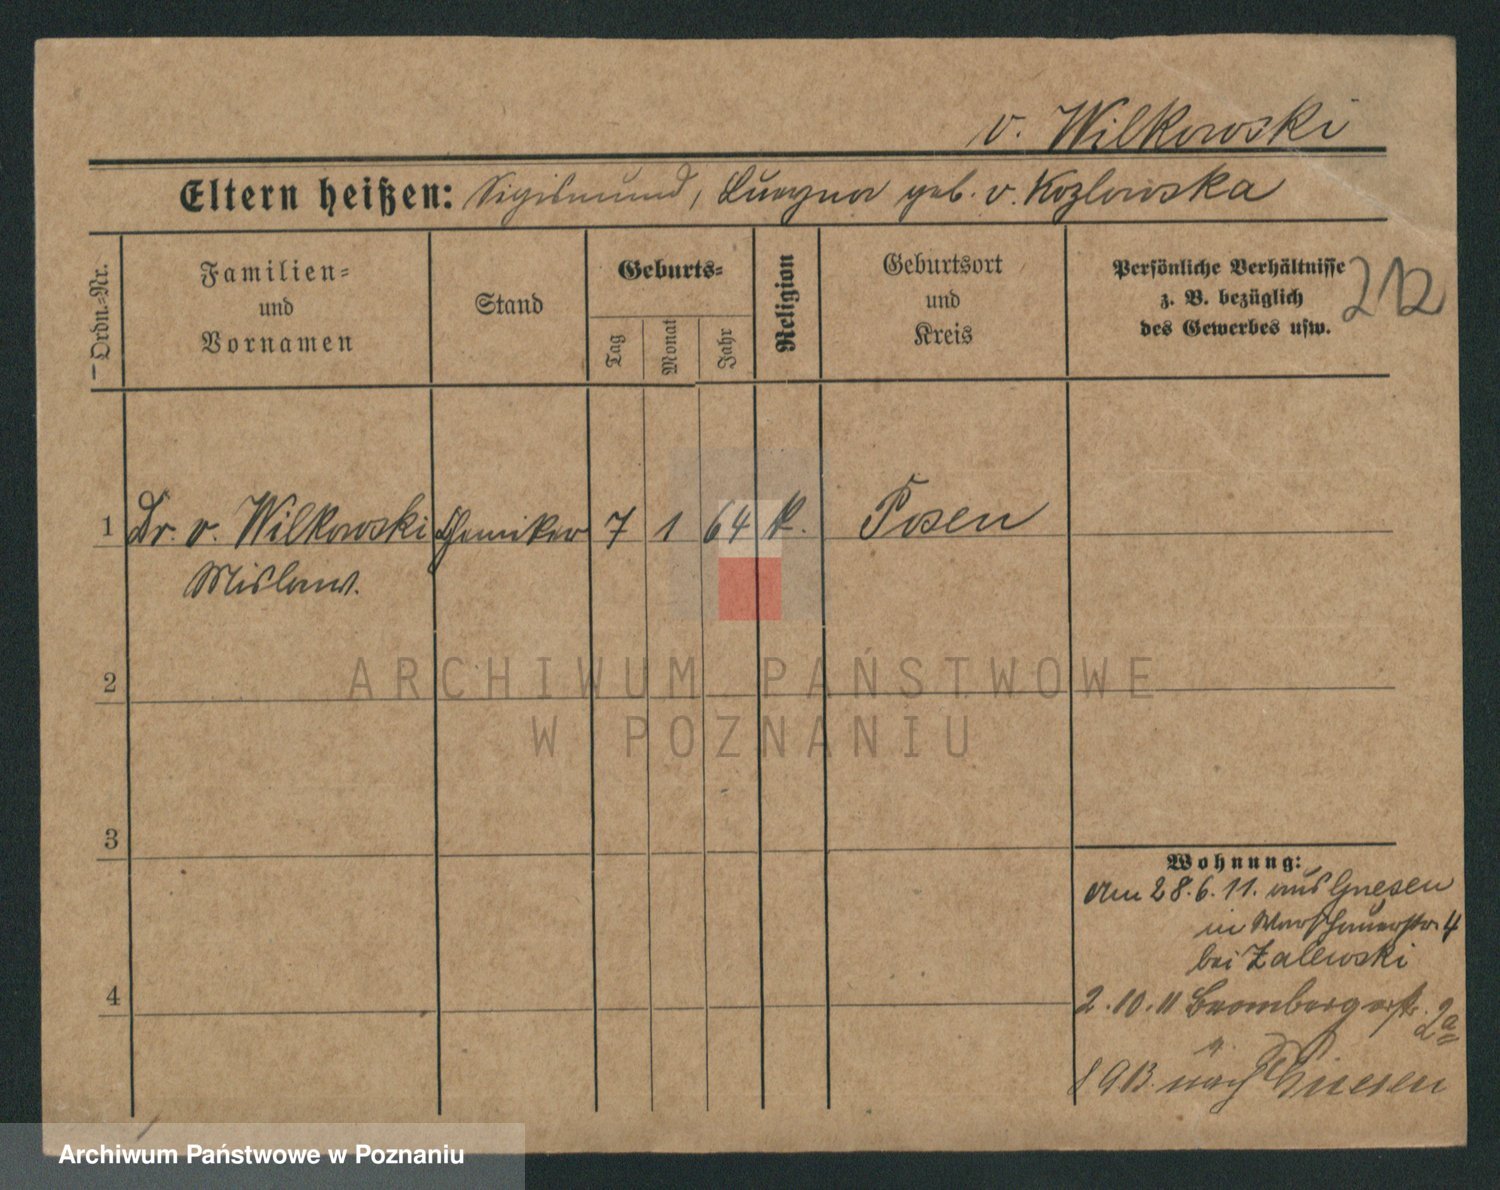 v. Wilkowski
Eltern heißen: Sigismund, geb. v. Kozlowska
Ordn.-Nr.
Familien-
und
Vornamen
Stand
Geburts-
Tag
Monat
Jahr
Religion
Geburtsort
und
Kreis
Persönliche Verhältnisse
z. B. bezüglich
des Gewerbes usw.
212
1 Dr. v. Wilkowski Chemiker 7 1 64 k. Posen
Mislaw.
2
3
4
Wohnung:
Am 28.6.11. aus Gnesen
in Warschauerstr. 4
bei Zalewski
2.10.11 Brombergerstr. 2a
nach Gnesen
ARCHIWUM PAŃSTWOWE
W POZNANIU
Archiwum Państwowe w Poznaniu